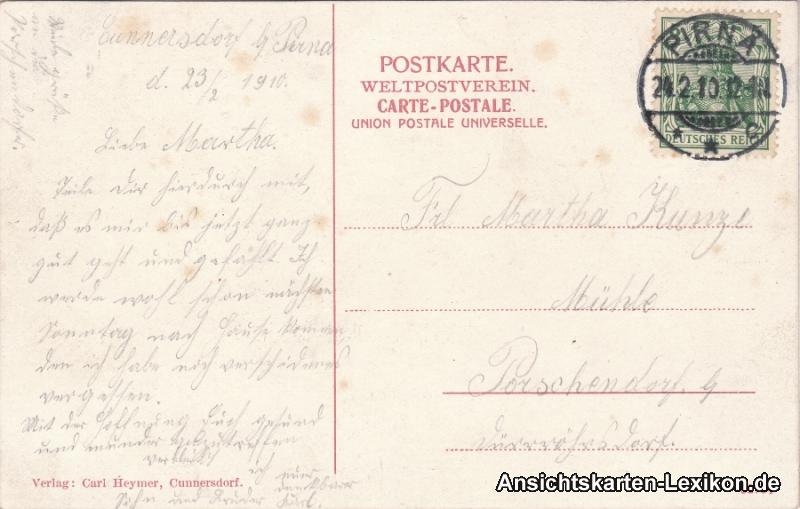 Cunnersdorf b/ Pirna
d. 23/2 1910.
Liebe Martha.
Teile Dir hierdurch mit,
daß es mir bis jetzt ganz
gut geht und gefählt. Ich
werde wohl schon nächsten
Sonntag nach Hause kommen,
den ich habe noch verschiedenes
vergessen.
Mit der Hoffnung Euch gesund
und munder anzutreffen
verbleib ich
ich euer
dankbarer
Sohn und Bruder Karl.
Viele Grüße
Porschendorf
Verlag: Carl Heymer, Cunnersdorf.
POSTKARTE.
WELTPOSTVEREIN.
CARTE-POSTALE.
UNION POSTALE UNIVERSELLE.
PIRNA
24.2.10.12-1N
* * c
DEUTSCHES REICH
Frl Martha Kunze
Mühle
Porschendorf b/
Dürrröhrsdorf.
Ansichtskarten-Lexikon.de